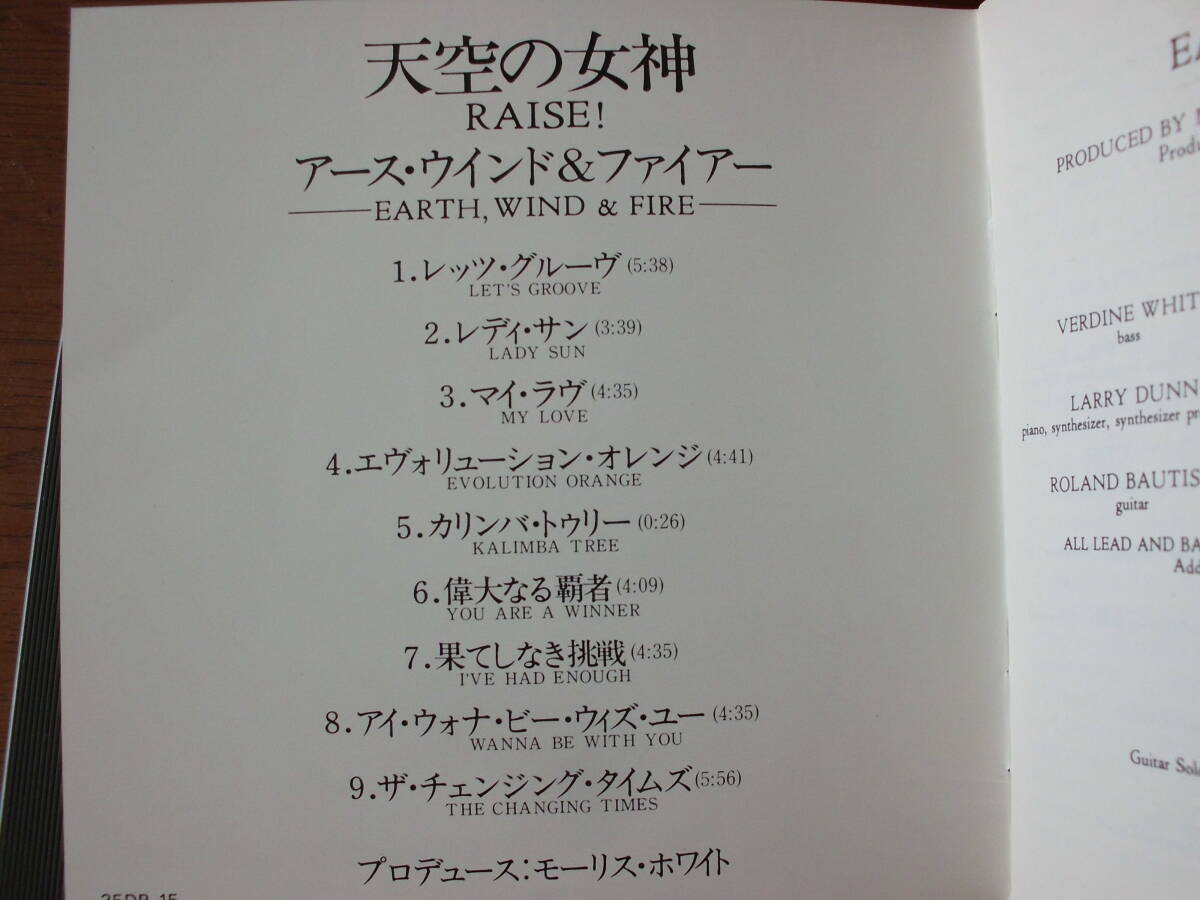 天空の女神
RAISE!
アース・ウインド&ファイアー
EARTH, WIND & FIRE
1.レッツ・グルーヴ(5:38)
LET'S GROOVE
2.レディ・サン(3:39)
LADY SUN
3.マイ・ラヴ(4:35)
MY LOVE
4.エヴォリューション・オレンジ(4:41)
EVOLUTION ORANGE
5.カリンバ・トゥリー(0:26)
KALIMBA TREE
6.偉大なる覇者(4:09)
YOU ARE A WINNER
7.果てしなき挑戦(4:35)
I'VE HAD ENOUGH
8.アイ・ウォナ・ビー・ウィズ・ユー(4:35)
WANNA BE WITH YOU
9.ザ・チェンジング・タイムズ(5:56)
THE CHANGING TIMES
プロデュース:モーリス・ホワイト
PRODUCED BY
Produ
VERDINE WHIT
bass
LARRY DUNN
piano, synthesizer, synthesizer pr
ROLAND BAUTIS
guitar
ALL LEAD AND BA
Add
Guitar Solo